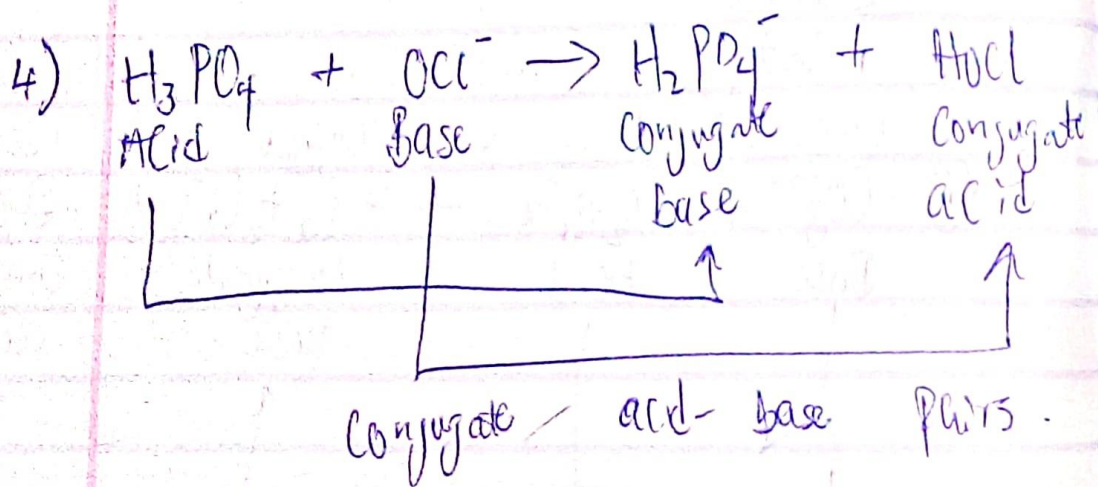 4) H₃PO₄ + OCl⁻ → H₂PO₄⁻ + HOCl
Acid Base Conjugate Conjugate
base acid
Conjugate acid-base pairs.